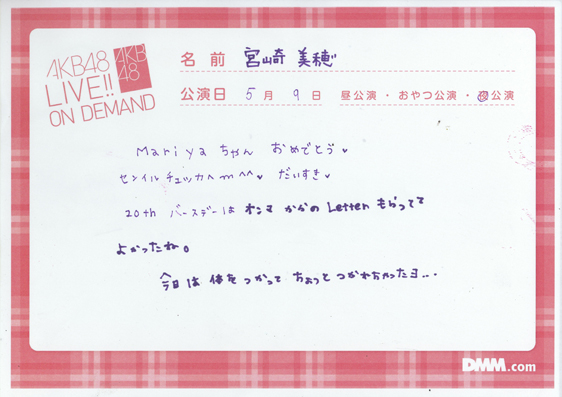 AKB48
LIVE!!
ON DEMAND
AKB
48
名前 宮崎 美穂
公演日 5月9日 昼公演・おやつ公演・夜公演
Mariyaちゃん おめでとう♥
センイルチュッカヘm^^♥ だいすき♥
20th バースデーは オンマ からの Letter もらってて
よかったね。
今日は 体を つかって ちょっと つかれちゃったヨ...
DMM.com